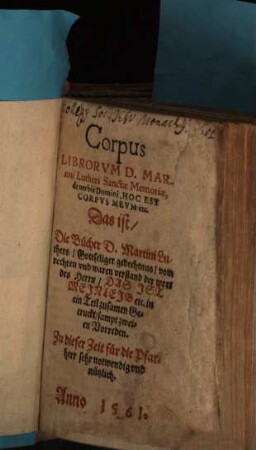 Corpus
LIBRORVM D. MAR-
tini Lutheri Sanctæ Memoriæ,
de verbis Domini, HOC EST
CORPVS MEVM etc.
Das ist/
Die Bücher D. Martini Lu-
thers/ Gottseliger gedechtnus/ vom
rechten vnd waren verstand der wort
des Herrn/ DAS IST
MEIN LEIB etc. in
ein Teil zusamen Ge-
truckt/ sampt zwei-
en Vorreden.
Zu dieser Zeit für die Pfar-
herr sehr notwendig vnd
nützlich.
Anno 1561.